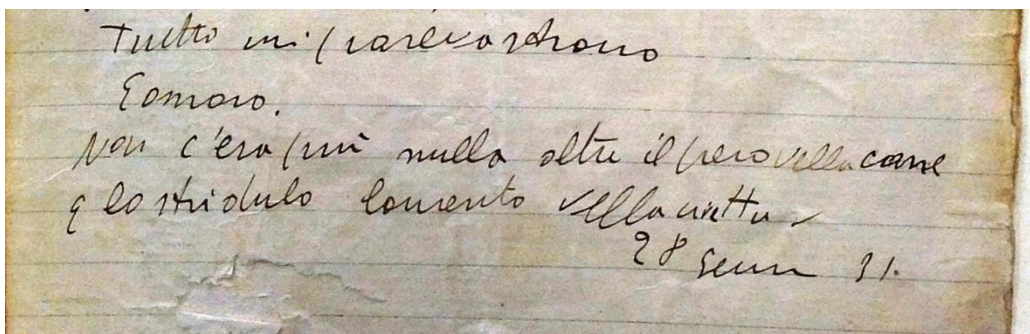 Tutto mi pareva strano
E amaro.
Non c'era più nulla oltre il peso della carne
e lo stridulo lamento della
28 genn 31.